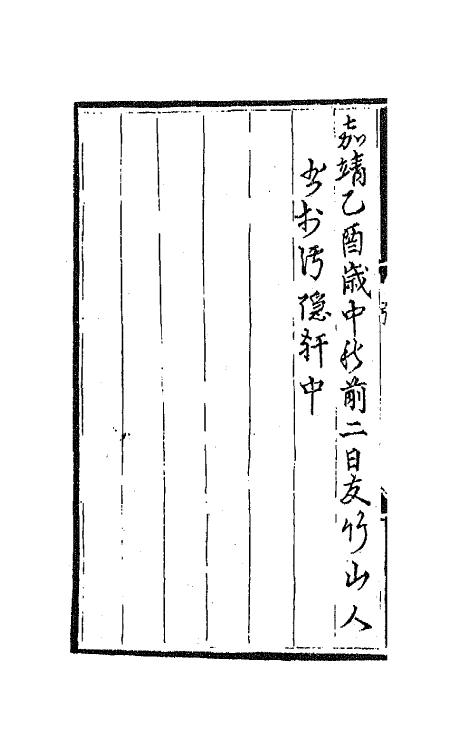 嘉靖乙酉歳中秋前二日友竹山人
书於沔隱軒中